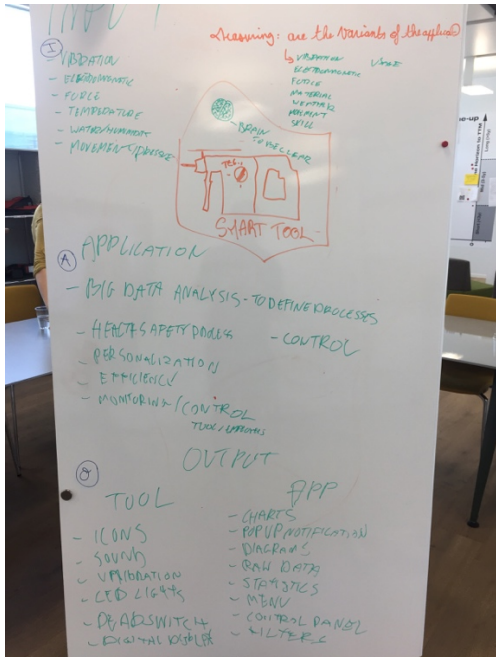 INPUT
Measuring: are the variants of the
I
- VIBRATION
- ELECTROMAGNETIC
- FORCE
- TEMPERATURE
- WATER/HUMIDITY
- MOVEMENT/
VIBRATION
ELECTROMAGNETIC
FORCE
MATERIAL
WEATHER
SKILL
- BRAIN
SMART TOOL
A APPLICATION
- BIG DATA ANALYSIS - TO DEFINE PROCESSES
- HEALTH SAFETY - CONTROL
- PERSONALIZATION
- EFFICIENCY
- MONITORING/CONTROL
TOOL/
OUTPUT
O
TOOL
- ICONS
- SOUND
- VIBRATION
- LED LIGHTS
- DEADSWITCH
- DIGITAL
APP
- CHARTS
- POP UP NOTIFICATION
- DIAGRAMS
- RAW DATA
- STATISTICS
- MENU
- CONTROL PANEL
- FILTERS